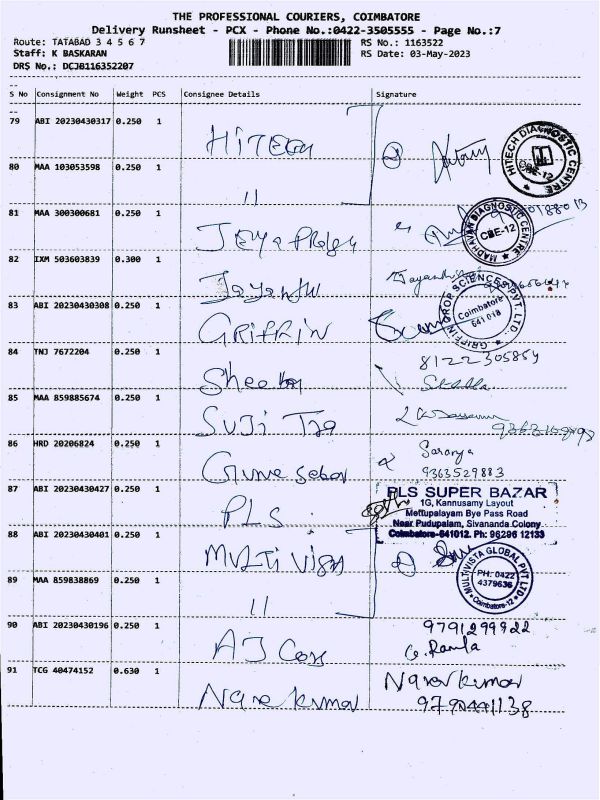 THE PROFESSIONAL COURIERS, COIMBATORE
Delivery Runsheet - PCX - Phone No.:0422-3505555 - Page No.:7
Route: TATABAD 3 4 5 6 7
RS No.: 1163522
Staff: K BASKARAN
RS Date: 03-May-2023
DRS No.: DCJB116352207
S No Consignment No Weight PCS Consignee Details Signature
79 ABI 20230430317 0.250 1 HiTECH
HITECH DIAGNOSTIC CENTRE CBE-12
80 MAA 103053598 0.250 1 11
81 MAA 300300681 0.250 1
MADHAVAN DIAGNOSTIC CENTRE CBE-12
82 IXM 503603839 0.300 1 Jayanthi
83 ABI 20230430308 0.250 1 GRiFFiN
GRIFFIN CROP SCIENCES PVT. LTD. Coimbatore 641 018
84 TNJ 7672204 0.250 1
8122305859
85 MAA 859885674 0.250 1 SUJI
86 HRD 20206824 0.250 1 Gunasekar Saranya
9363529883
87 ABI 20230430427 0.250 1 PLS
PLS SUPER BAZAR
1G, Kannusamy Layout
Mettupalayam Bye Pass Road
Near Pudupalam, Sivananda Colony
Coimbatore-641012. Ph: 96296 12133
88 ABI 20230430401 0.250 1 MULTi Vista
MULTIVISTA GLOBAL PVT LTD PH: 0422 4379636 Coimbatore-12
89 MAA 859838869 0.250 1 11
90 ABI 20230430196 0.250 1 AJ
9791299922
G. Ramla
91 TCG 40474152 0.630 1 Narenkumar Narenkumar
9790441138